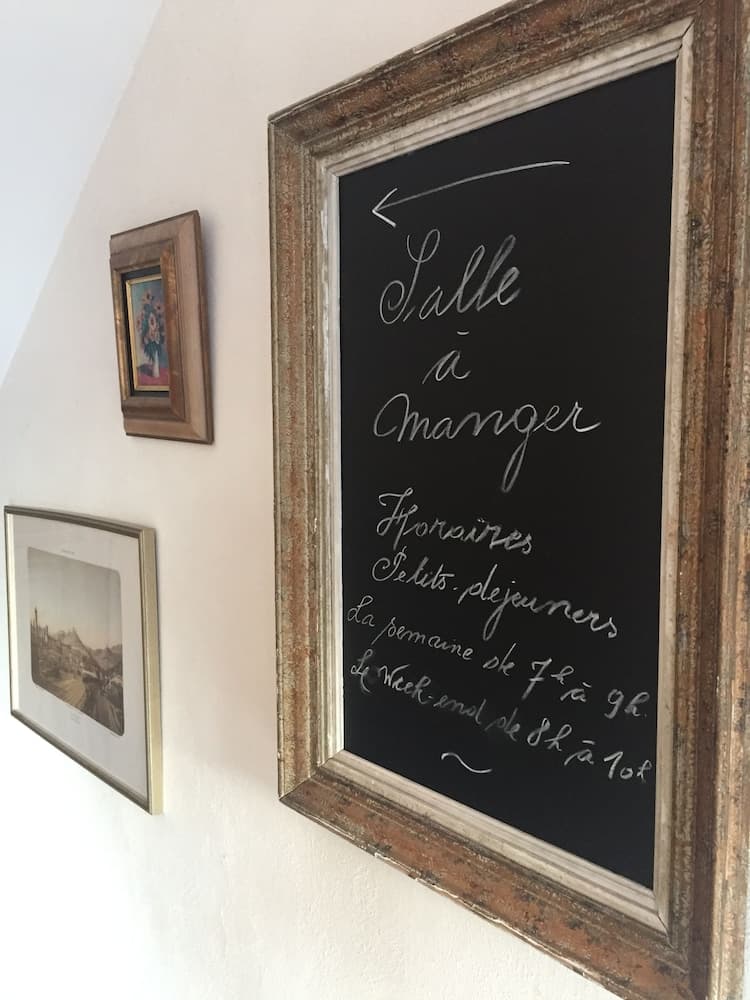 Salle
à
manger
Horaires
Petits-dejeuners
La semaine de 7h à 9h.
Le Week-end de 8h à 10h